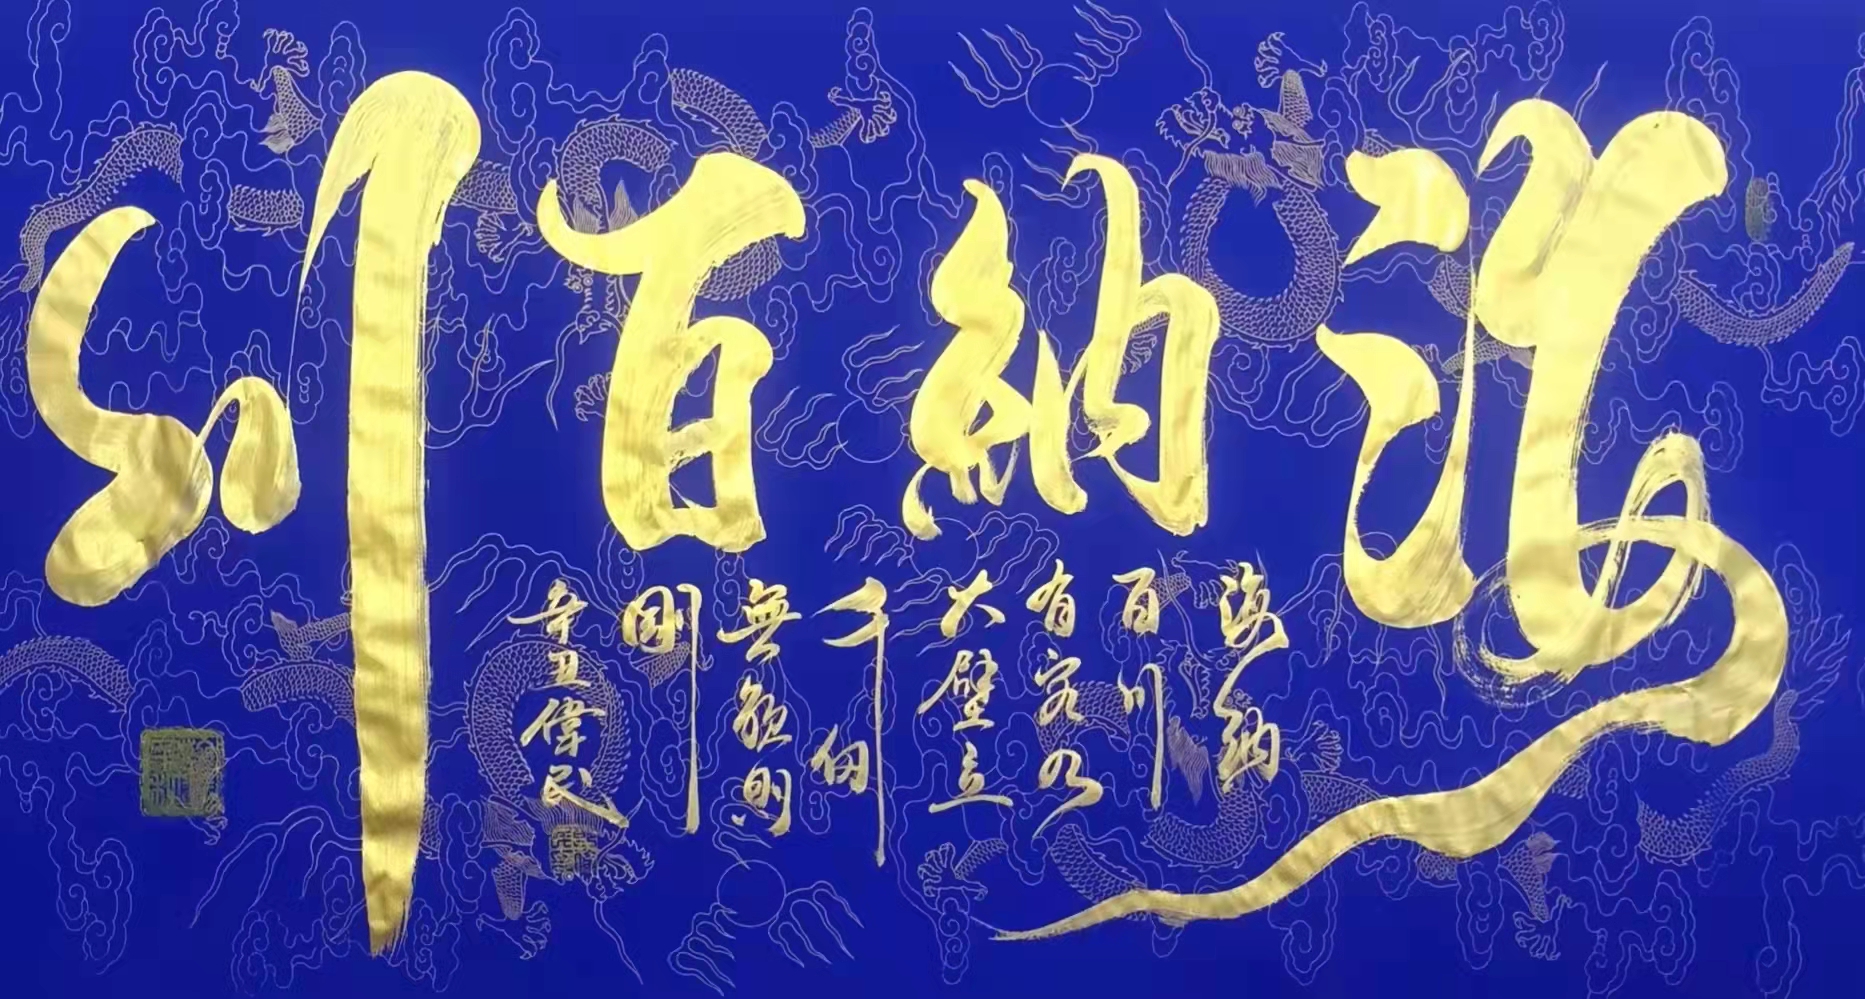 海納百川
海納
百川
有容乃
大壁立
千仞
無欲則
剛
辛丑偉民